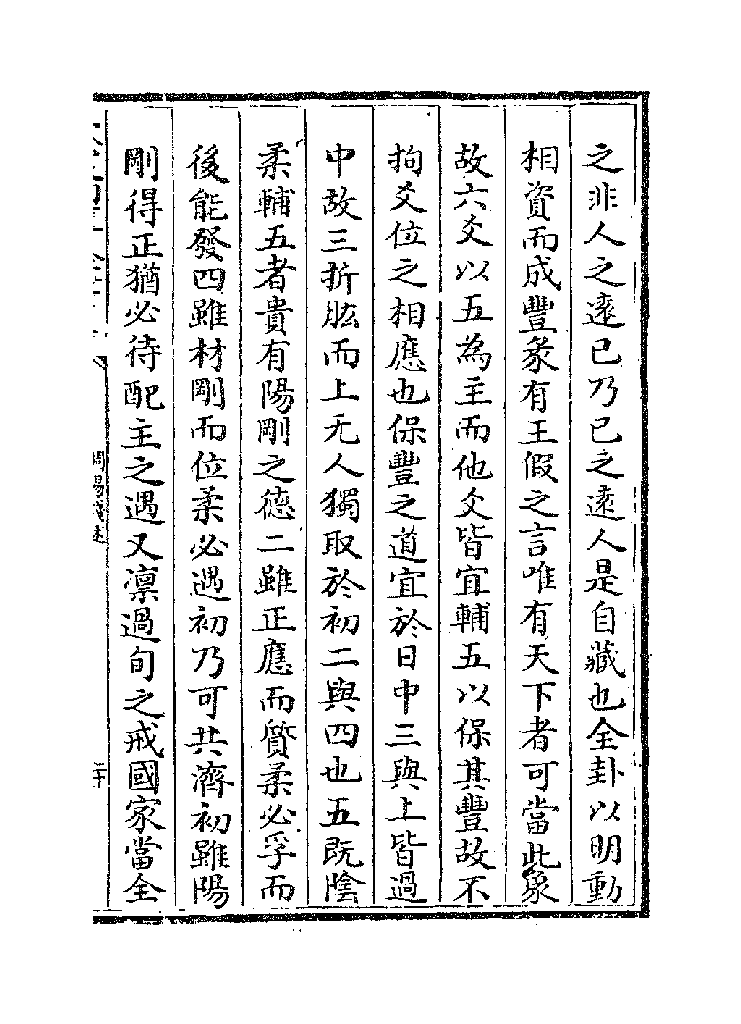 之非人之遠已乃已之遠人是自藏也全卦以明動
相資而成豐彖有王假之言唯有天下者可當此象
故六爻以五為主而他爻皆宜輔五以保其豐故不
拘爻位之相應也保豐之道宜於日中三與上皆過
中故三折肱而上无人獨取於初二與四也五既陰
柔輔五者貴有陽剛之德二雖正應而質柔必孚而
後能發四雖材剛而位柔必遇初乃可共濟初雖陽
剛得正猶必待配主之遇又凛過旬之戒國家當全
周易淺述
二十